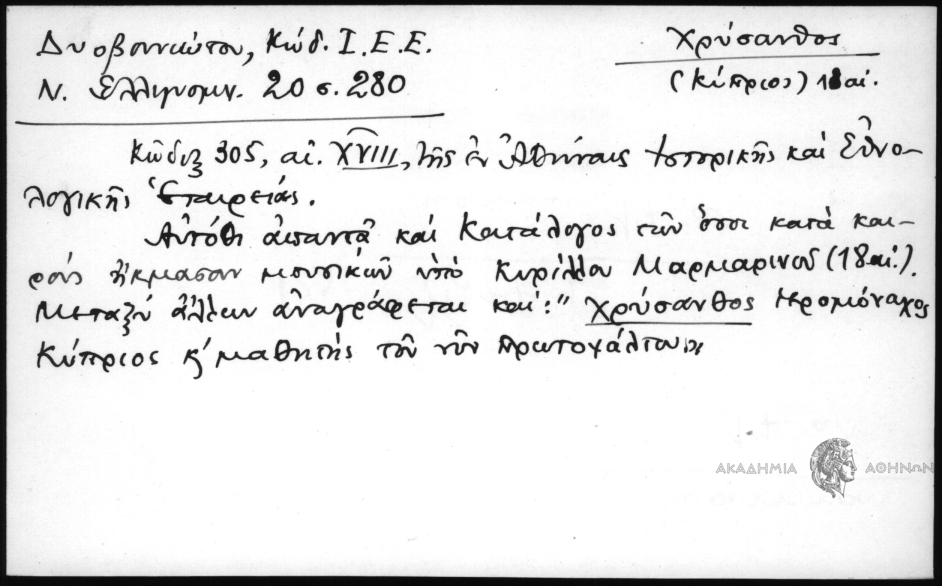 Δυοβουνιώτου, Κώδ. Ι.Ε.Ε.
Ν. Ελληνομν. 20 σ. 280
Χρύσανθος
(Κύπριος) 18 αἰ.
Κῶδιξ 305, αἰ. XVIII, τῆς ἐν Ἀθήναις Ἱστορικῆς καὶ Ἐθνο-
λογικῆς Ἑταιρείας.
Αὐτόθι ἀπαντᾷ καὶ Κατάλογος τῶν ὅσοι κατὰ και-
ροὺς ἤκμασαν μουσικῶν ὑπὸ Κυρίλλου Μαρμαρινοῦ (18 αἰ.).
Μεταξὺ ἄλλων ἀναγράφεται καί: "Χρύσανθος ἱερομόναχος
Κύπριος κ' μαθητὴς τοῦ νῦν πρωτοψάλτου"
ΑΚΑΔΗΜΙΑ ΑΘΗΝΩΝ